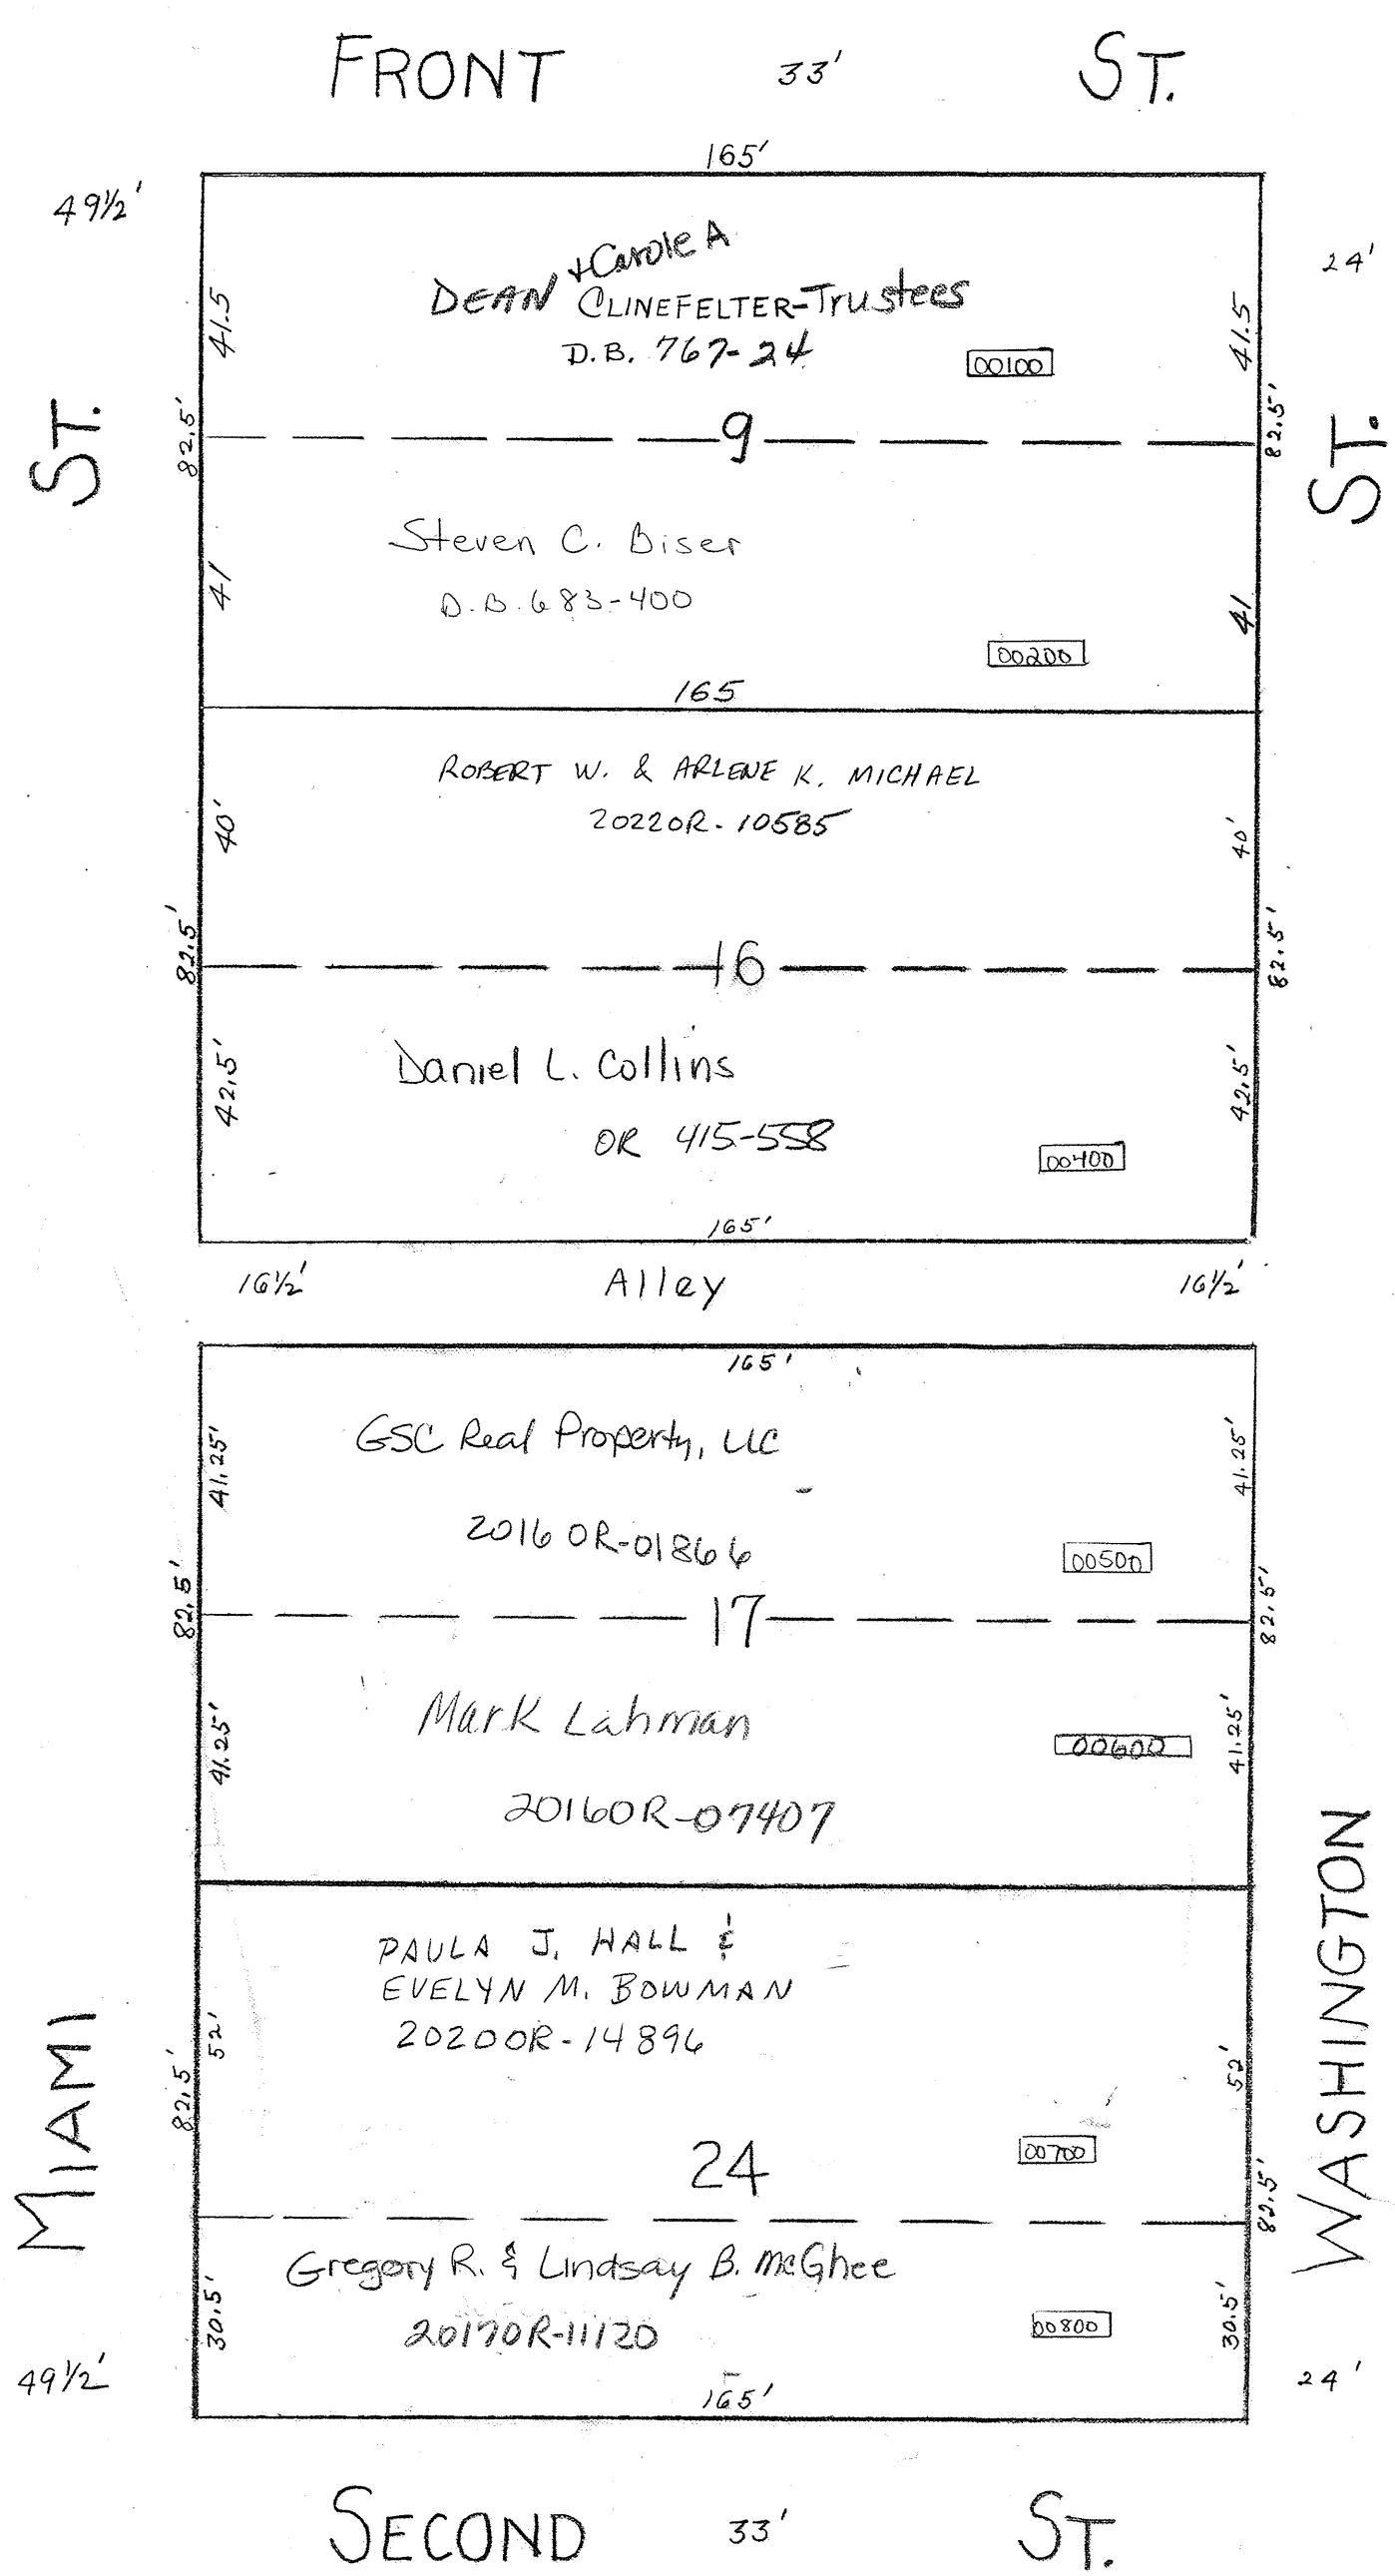 FRONT 33' ST.
165'
49½'
24'
+ Carole A
DEAN CLINEFELTER-Trustees
D.B. 767-24
00100
41.5
41.5
82.5'
82.5'
ST.
ST.
9
Steven C. Biser
D.B. 683-400
41
41
00200
165
ROBERT W. & ARLENE K. MICHAEL
2022OR-10585
40'
40'
82.5'
82.5'
16
Daniel L. Collins
OR 415-558
42.5'
42.5'
00400
165'
16½' Alley 16½'
165'
GSC Real Property, LLC
2016 OR-01866
41.25'
41.25'
00500
82.5'
82.5'
17
Mark Lahman
2016OR-07407
41.25'
41.25'
00600
PAULA J. HALL &
EVELYN M. BOWMAN
2020OR-14896
52'
52'
82.5'
82.5'
MIAMI
WASHINGTON
00700
24
Gregory R. & Lindsay B. McGhee
2017OR-11120
30.5'
30.5'
00800
49½'
24'
165'
SECOND 33' ST.